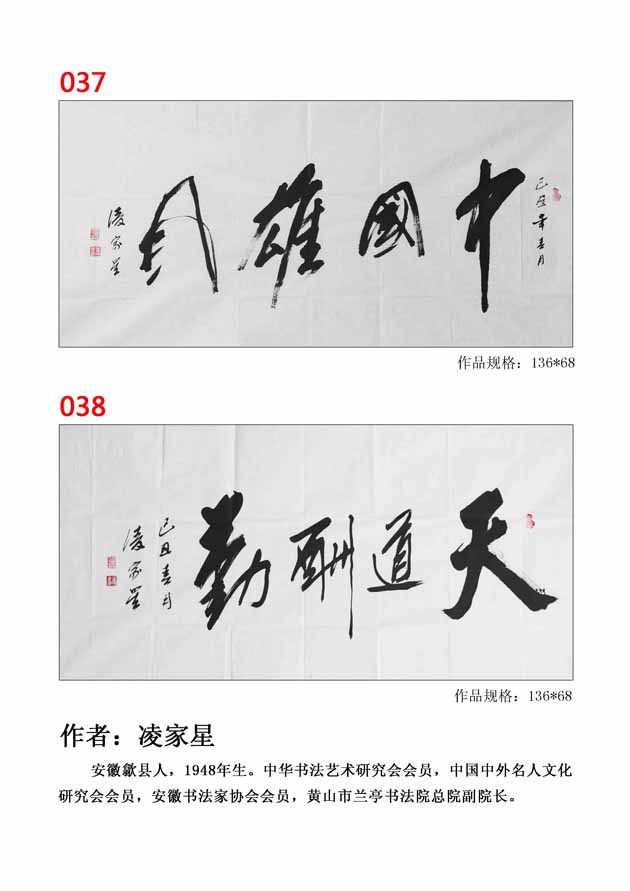 037
中國雄風
己丑年春月
凌家星
作品规格：136*68
038
天道酬勤
己丑春月
凌家星
作品规格：136*68
作者：凌家星
安徽歙县人，1948年生。中华书法艺术研究会会员，中国中外名人文化
研究会会员，安徽书法家协会会员，黄山市兰亭书法院总院副院长。